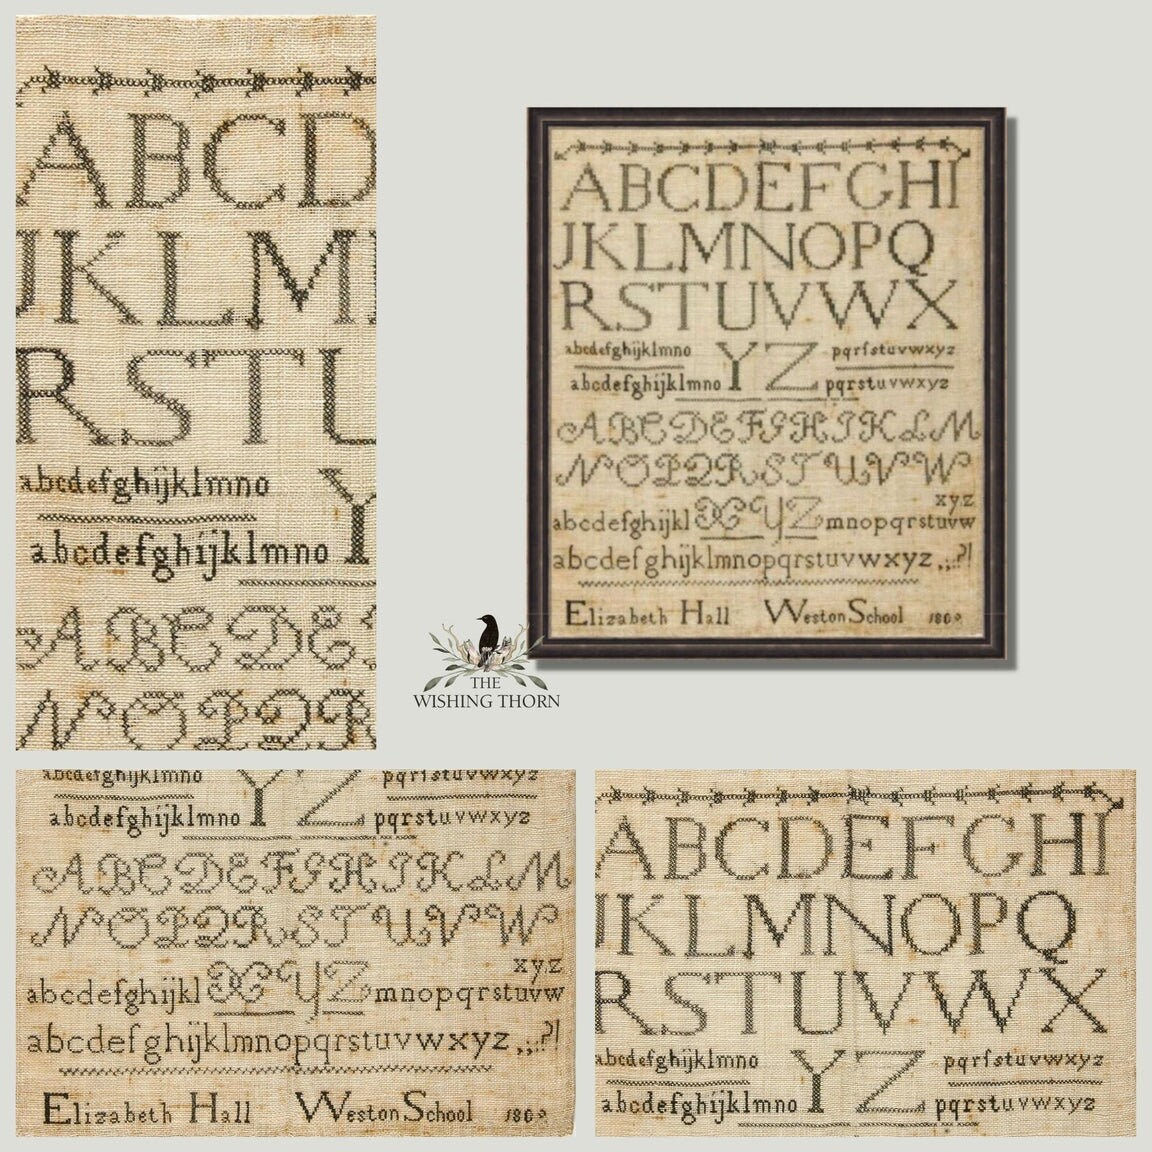 ABCD
JKLM
RSTU
abcdefghijklmno Y
abcdefghijklmno
ABCDE
NOPQR
ABCDEFGHI
JKLMNOPQ
RSTUVWX
abcdefghijklmno YZ pqrſstuvwxyz
abcdefghijklmno pqrstuvwxyz
ABCDEFGHIJKLM
NOPQRSTUVW
xyz
abcdefghijkl XYZ mnopqrstuvw
abcdefghijklmnopqrstuvwxyz ,;:?!
Elizabeth Hall Weston School
THE
WISHING THORN
abcdefghijklmno YZ pqrſstuvwxyz
abcdefghijklmno pqrstuvwxyz
ABCDEFGHIJKLM
NOPQRSTUVW
xyz
abcdefghijkl XYZ mnopqrstuvw
abcdefghijklmnopqrstuvwxyz ,;:?!
Elizabeth Hall Weston School
ABCDEFGHI
JKLMNOPQ
RSTUVWX
abcdefghijklmno YZ pqrſstuvwxyz
abcdefghijklmno pqrstuvwxyz